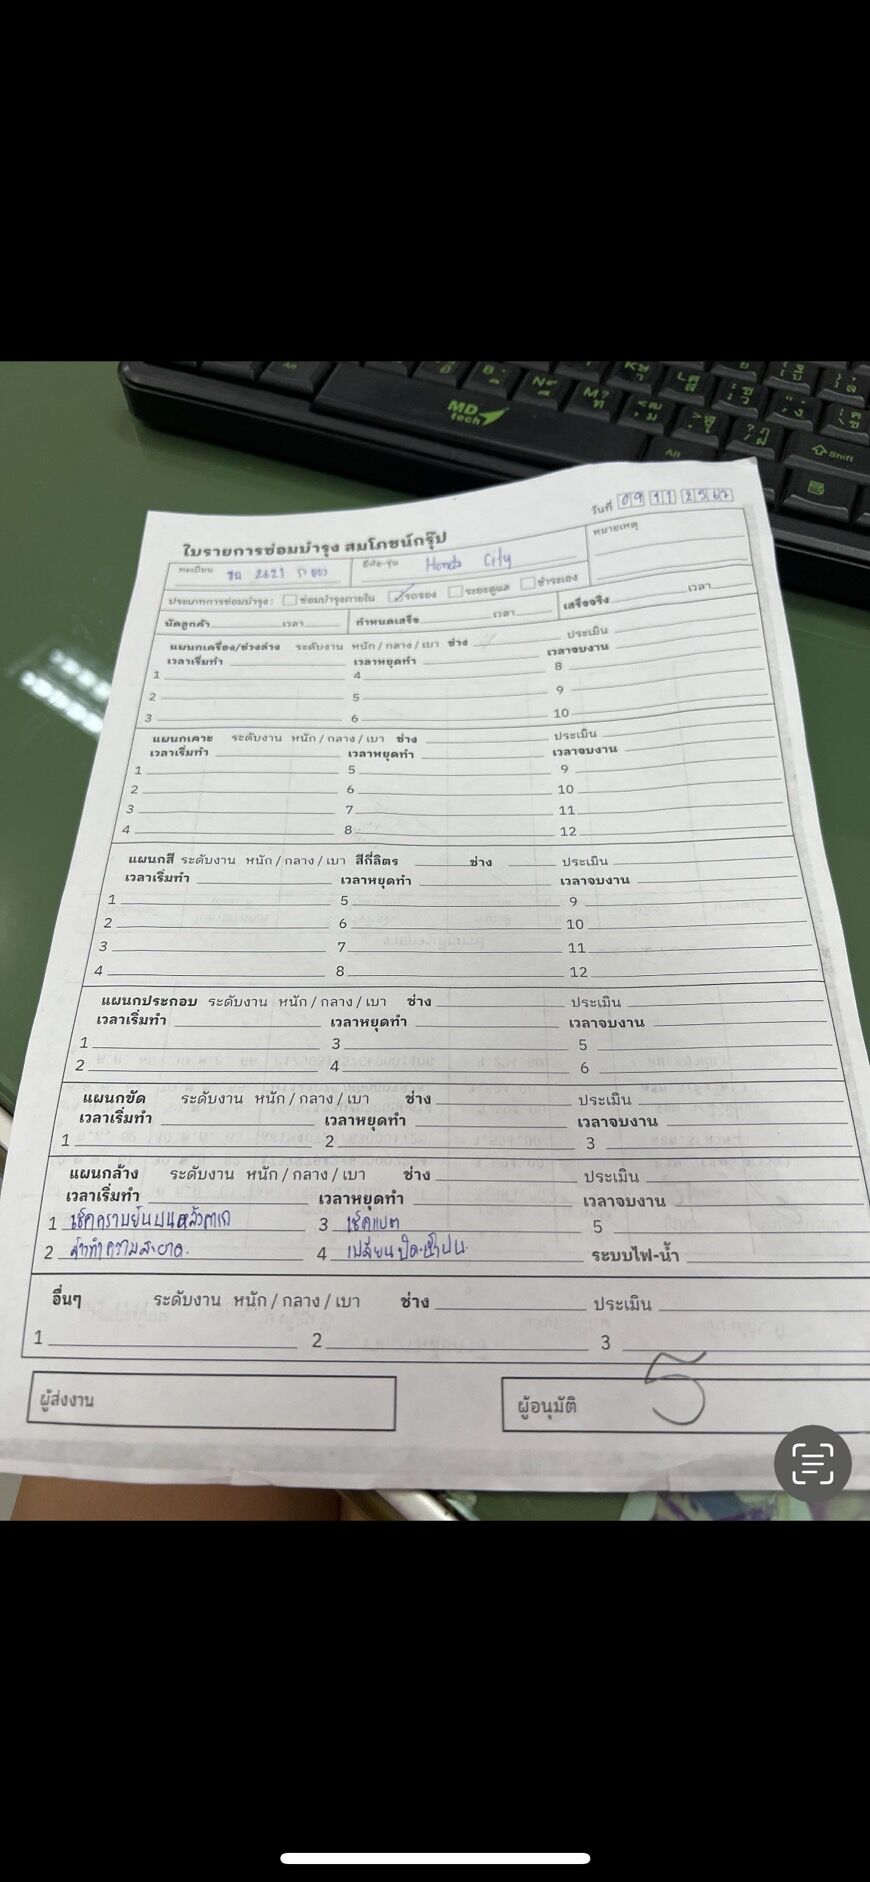 MD tech
Alt
Shift
วันที่ 09 11 2567
ใบรายการซ่อมบำรุง สมโภชน์กรุ๊ป
หมายเหตุ
ทะเบียน 2621 ระยอง ยี่ห้อ-รุ่น Honda City
ประเภทการซ่อมบำรุง: ซ่อมบำรุงภายใน รถจอง ระยะดูแล ชำระเอง
นัดลูกค้า เวลา กำหนดเสร็จ เวลา เสร็จจริง เวลา
แผนกเครื่อง/ช่วงล่าง ระดับงาน หนัก / กลาง / เบา ช่าง ประเมิน
เวลาเริ่มทำ เวลาหยุดทำ เวลาจบงาน
1 4 8
2 5 9
3 6 10
แผนกเคาะ ระดับงาน หนัก / กลาง / เบา ช่าง ประเมิน
เวลาเริ่มทำ เวลาหยุดทำ เวลาจบงาน
1 5 9
2 6 10
3 7 11
4 8 12
แผนกสี ระดับงาน หนัก / กลาง / เบา สีกี่ลิตร ช่าง ประเมิน
เวลาเริ่มทำ เวลาหยุดทำ เวลาจบงาน
1 5 9
2 6 10
3 7 11
4 8 12
แผนกประกอบ ระดับงาน หนัก / กลาง / เบา ช่าง ประเมิน
เวลาเริ่มทำ เวลาหยุดทำ เวลาจบงาน
1 3 5
2 4 6
แผนกขัด ระดับงาน หนัก / กลาง / เบา ช่าง ประเมิน
เวลาเริ่มทำ เวลาหยุดทำ เวลาจบงาน
1 2 3
แผนกล้าง ระดับงาน หนัก / กลาง / เบา ช่าง ประเมิน
เวลาเริ่มทำ เวลาหยุดทำ เวลาจบงาน
1 3 เช็คแบต 5
2 ล้างทำความสะอาด. 4 ระบบไฟ-น้ำ
อื่นๆ ระดับงาน หนัก / กลาง / เบา ช่าง ประเมิน
1 2 3
ผู้ส่งงาน ผู้อนุมัติ